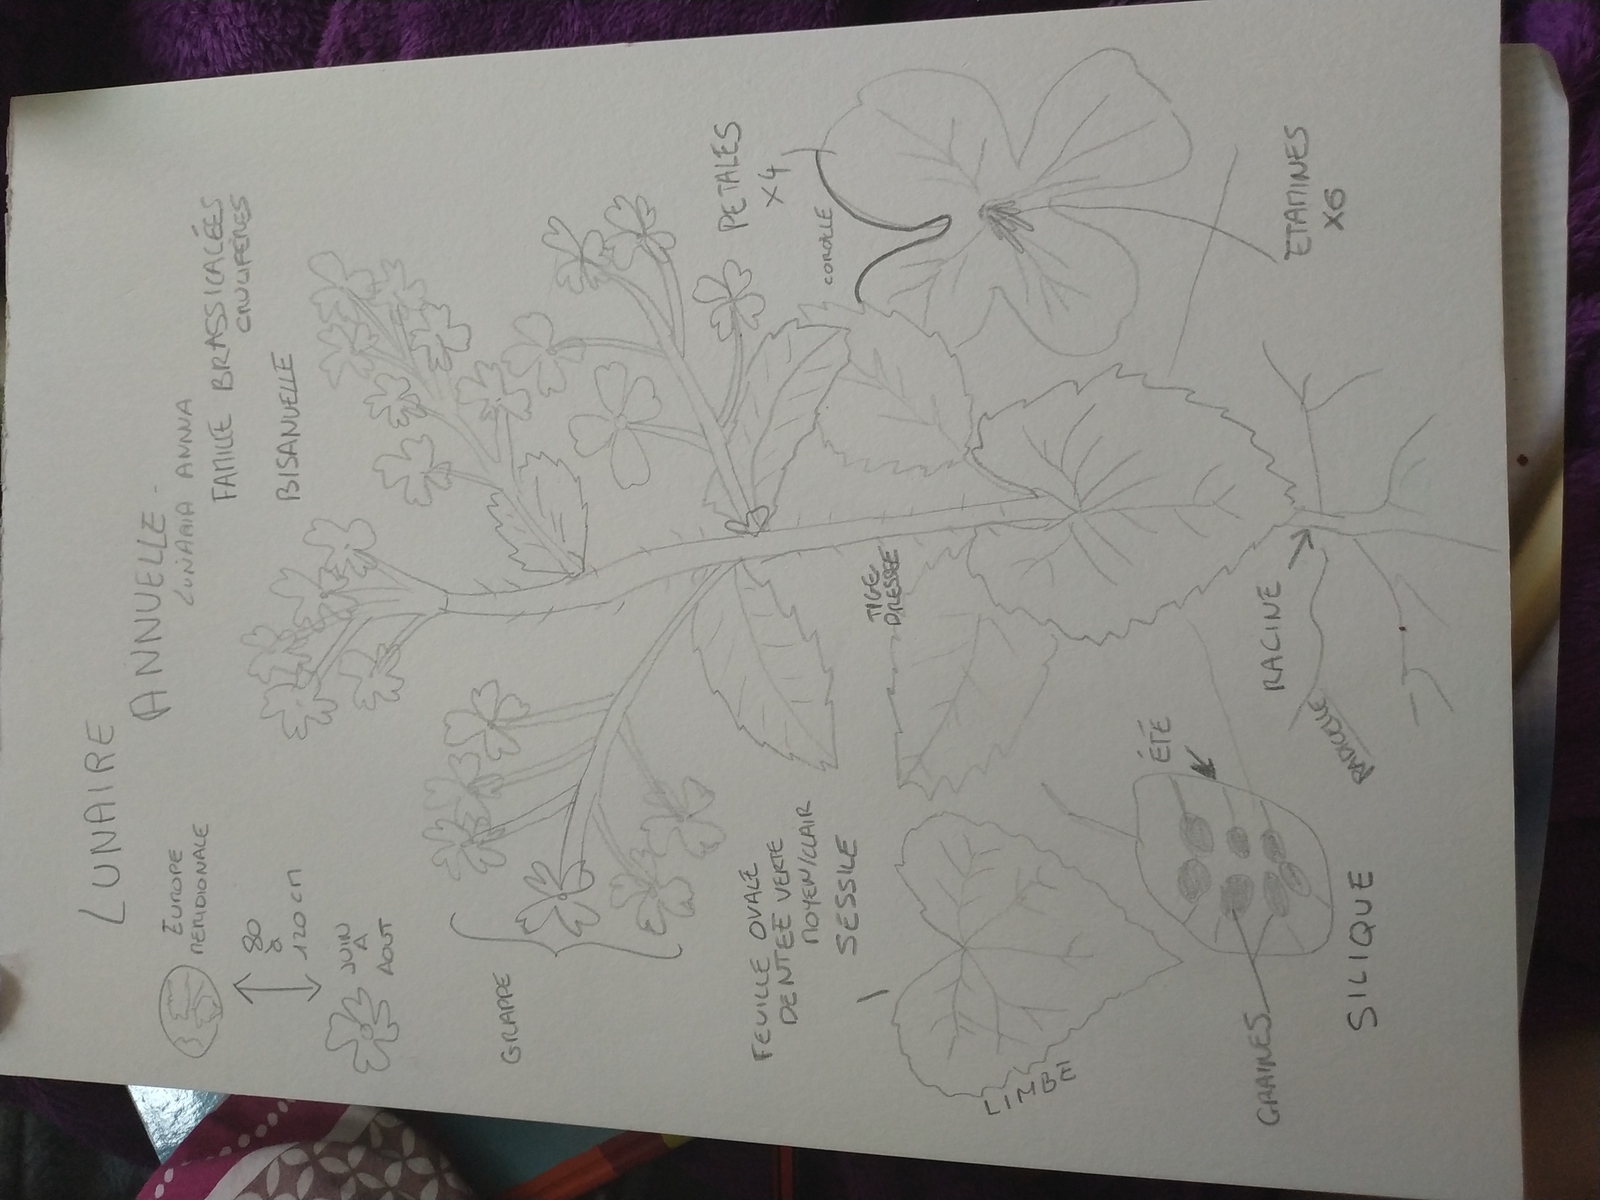 LUNAIRE
ANNUELLE -
LUNARIA ANNNA
FAMILLE BRASSICACÉES
CRUCIFÈRES
BISANUELLE
EUROPE
MERIDIONALE
80
à
120 cm
JUIN
A
AOUT
GRAPPE
PETALES
X4
COROLLE
ETAMINES
X6
FEUILLE OVALE
DENTEE VERTE
MOYEN/CLAIR
SESSILE
TIGE
DRESSEE
LIMBE
ÉTÉ
GRAINES
SILIQUE
RACINE
RADICELLE